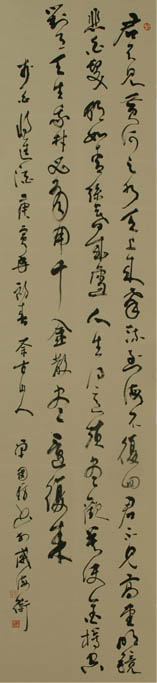 君不見黃河之水天上來奔流到海不復回君不見高堂明鏡
悲白髮朝如青絲暮成雪人生得意須盡歡莫使金樽空
對月天生我材必有用千金散盡還復来
李白将進酒庚寅春古山人書於威海衛